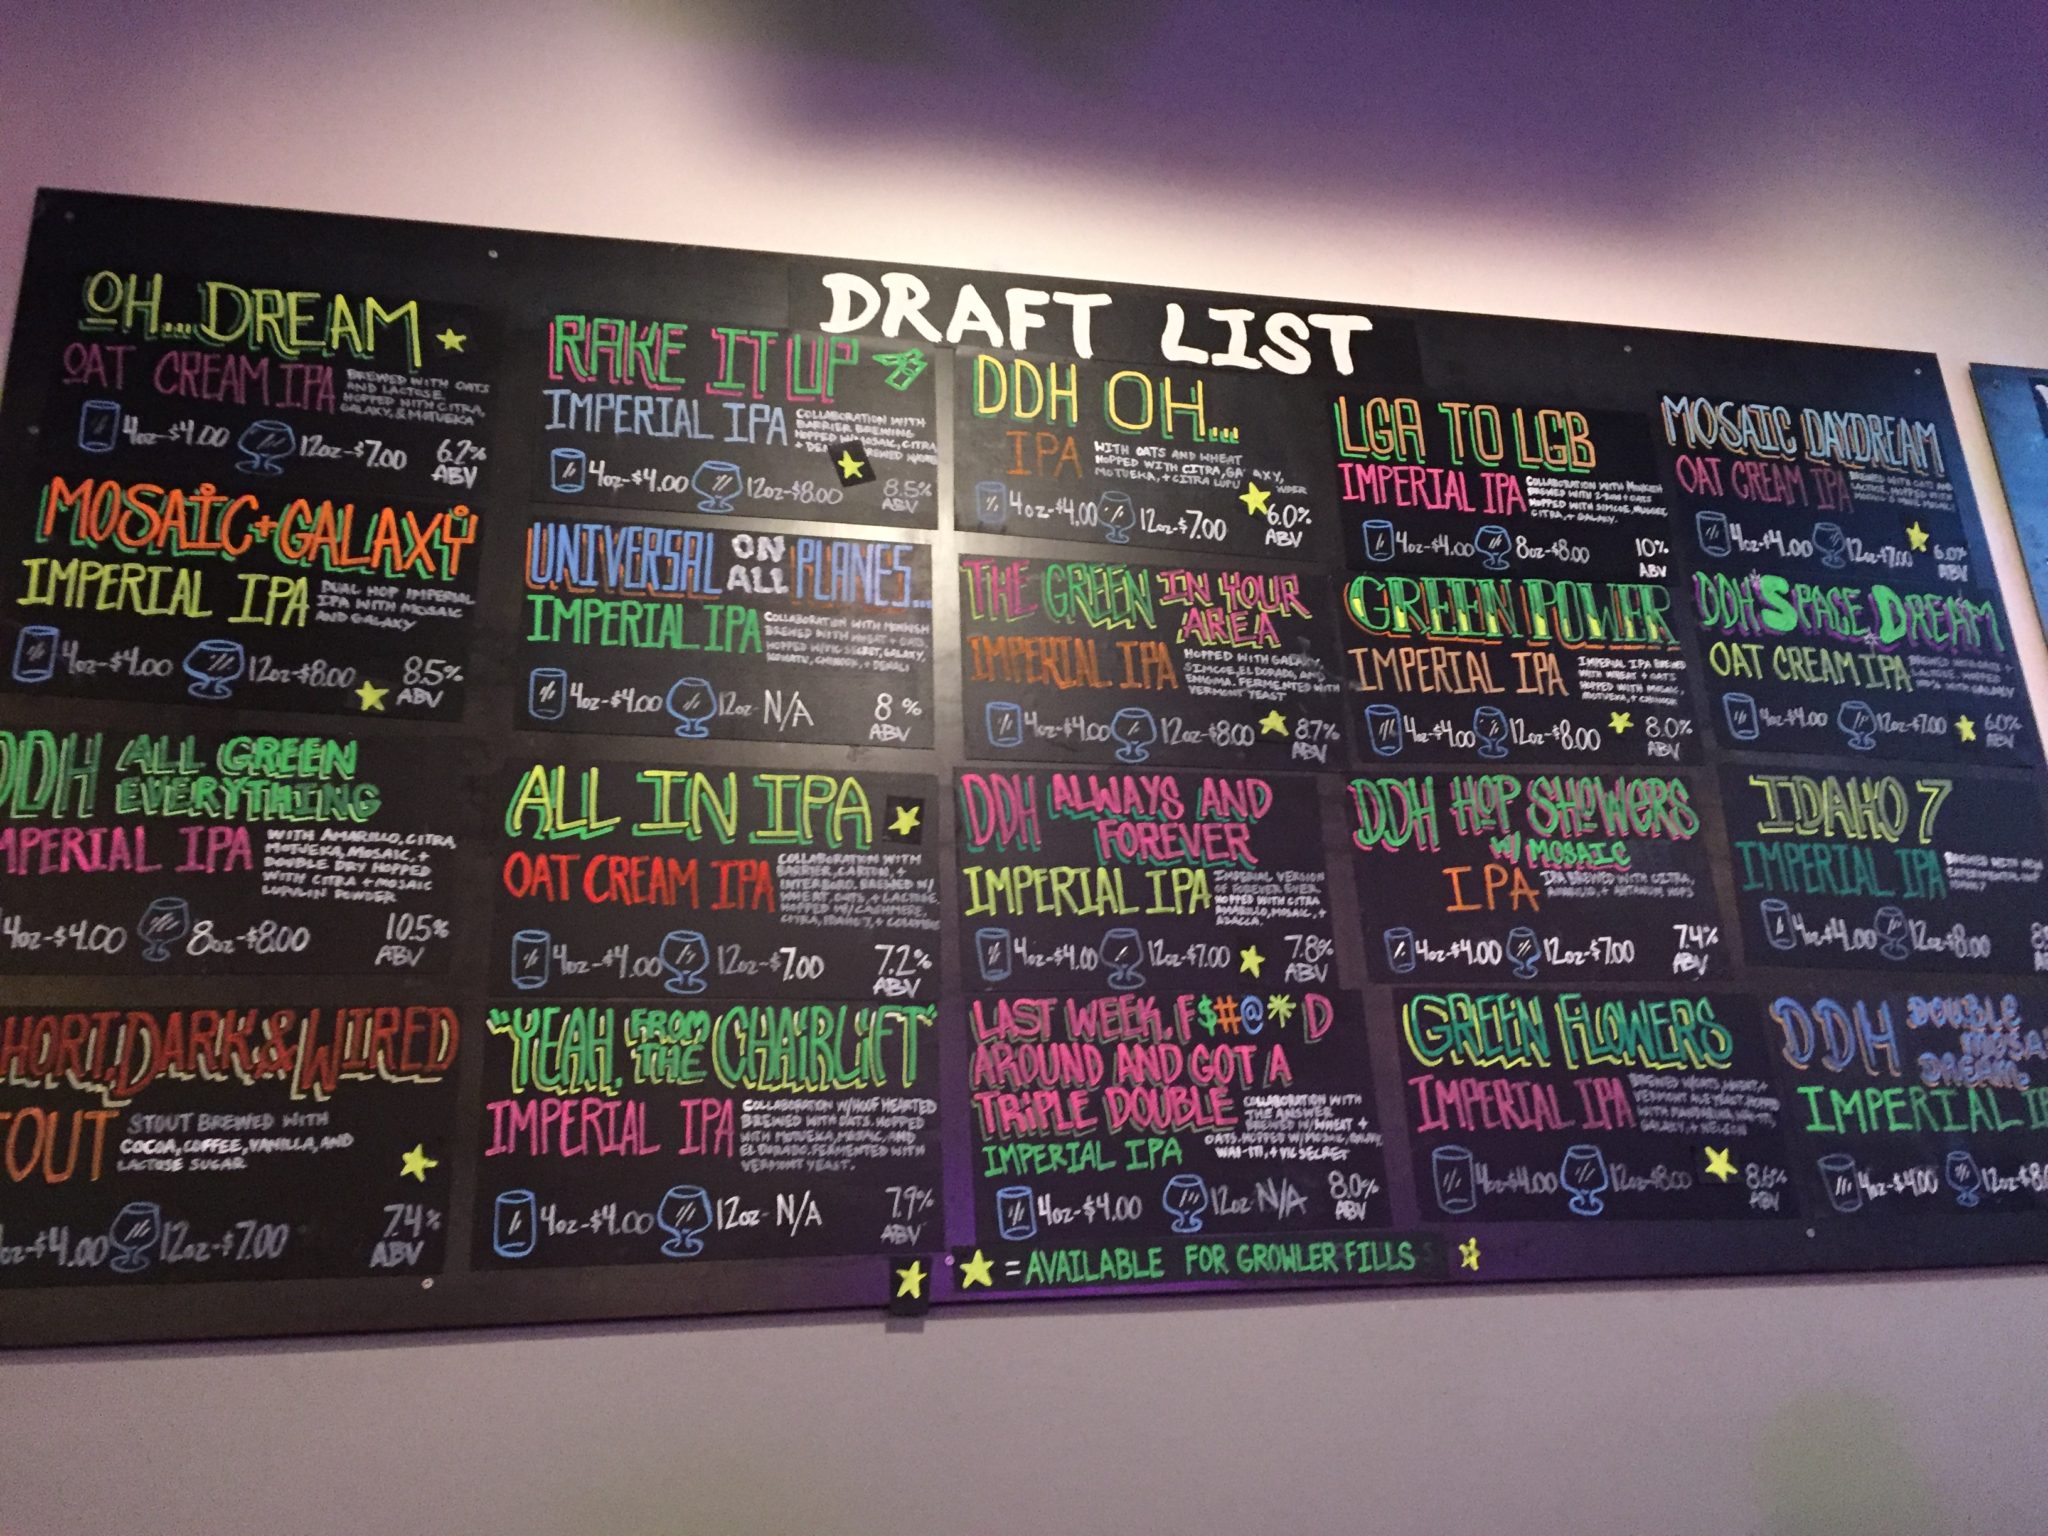 DRAFT LIST
OH... DREAM
OAT CREAM IPA
BREWED WITH OATS
AND LACTOSE.
HOPPED WITH CITRA,
GALAXY, & MOTUEKA
4oz-$4.00 12oz-$7.00 6.2%
ABV
MOSAIC+GALAXY
IMPERIAL IPA
DUAL HOP IMPERIAL
IPA WITH MOSAIC
AND GALAXY
4oz-$4.00 12oz-$8.00 8.5%
ABV
DDH ALL GREEN
EVERYTHING
IMPERIAL IPA
WITH AMARILLO, CITRA,
MOTUEKA, MOSAIC, +
DOUBLE DRY HOPPED
WITH CITRA + MOSAIC
LUPULIN POWDER
4oz-$4.00 8oz-$8.00 10.5%
ABV
HORT, DARK & WIRED
TOUT
STOUT BREWED WITH
COCOA, COFFEE, VANILLA, AND
LACTOSE SUGAR
oz-$4.00 12oz-$7.00 7.4%
ABV
RAKE IT UP
IMPERIAL IPA
COLLABORATION WITH
BARRIER BREWING
HOPPED W/MOSAIC, CITRA
4oz-$4.00 12oz-$8.00 8.5%
ABV
UNIVERSAL ON ALL PLANES...
IMPERIAL IPA
COLLABORATION WITH MONKISH
BREWED WITH WHEAT + OATS
HOPPED W/VIC SECRET, GALAXY,
KOHATU, CHINOOK, + DENALI
4oz-$4.00 12oz-N/A 8%
ABV
ALL IN IPA
OAT CREAM IPA
COLLABORATION WITH
BARRIER, CARTON, +
INTERBORO. BREWED W/
WHEAT, OATS, + LACTOSE
HOPPED W/CASHMERE,
CITRA, IDAHO 7, +
4oz-$4.00 12oz-$7.00 7.2%
ABV
"YEAH, FROM THE CHAIRLIFT"
IMPERIAL IPA
COLLABORATION W/HOOF HEARTED
BREWED WITH OATS. HOPPED
WITH MOTUEKA, MOSAIC, AND
EL DORADO. FERMENTED WITH
VERMONT YEAST.
4oz-$4.00 12oz-N/A 7.9%
ABV
DDH OH...
IPA
WITH OATS AND WHEAT
HOPPED WITH CITRA, GA AXY,
MOTUEKA, + CITRA LUPU
WDER
4oz-$4.00 12oz-$7.00 6.0%
ABV
THE GREEN IN YOUR
AREA
IMPERIAL IPA
HOPPED WITH GALAXY,
SIMCOE, EL DORADO, AND
ENIGMA. FERMENTED WITH
VERMONT YEAST
4oz-$4.00 12oz-$8.00 8.7%
ABV
DDH ALWAYS AND
FOREVER
IMPERIAL IPA
IMPERIAL VERSION
OF FOREVER EVER
HOPPED WITH CITRA
AMARILLO, MOSAIC, +
AZACCA.
4oz-$4.00 12oz-$7.00 7.8%
ABV
LAST WEEK, F$#@*D
AROUND AND GOT A
TRIPLE DOUBLE
IMPERIAL IPA
COLLABORATION WITH
THE ANSWER
BREWED W/WHEAT +
OATS. HOPPED W/MOSAIC, GALAXY,
WAI-ITI, + VIC SECRET
4oz-$4.00 12oz-N/A 8.0%
ABV
LGA TO LGB
IMPERIAL IPA
COLLABORATION WITH MONKISH
BREWED WITH 2-ROW + OATS
HOPPED WITH SIMCOE,
CITRA, + GALAXY.
4oz-$4.00 8oz-$8.00 10%
ABV
GREEN POWER
IMPERIAL IPA
IMPERIAL IPA BREWED
WITH WHEAT + OATS
HOPPED WITH MOSAIC,
MOTUEKA, + CHINOOK
4oz-$4.00 12oz-$8.00 8.0%
ABV
DDH HOP SHOWERS
W/ MOSAIC
IPA
IPA BREWED WITH CITRA,
AMARILLO, + AHTANUM HOPS
4oz-$4.00 12oz-$7.00 7.4%
ABV
GREEN FLOWERS
IMPERIAL IPA
BREWED W/OATS, WHEAT, +
VERMONT ALE YEAST. HOPPED
WITH MANDARINA,
GALAXY, + NELSON
4oz-$4.00 12oz-$8.00 8.6%
ABV
MOSAIC DAYDREAM
OAT CREAM IPA
BREWED WITH OATS AND
LACTOSE, HOPPED WITH
4oz-$4.00 12oz-$7.00 6.0%
ABV
DDH SPACE DREAM
OAT CREAM IPA
BREWED WITH OATS +
LACTOSE. HOPPED
100% WITH GALAXY
4oz-$4.00 12oz-$7.00 6.0%
ABV
IDAHO 7
IMPERIAL IPA
BREWED WITH NEW
EXPERIMENTAL HOP
IDAHO 7
4oz-$4.00 12oz-$8.00
DDH DOUBLE
MOSA
DREAM
IMPERIAL IP
4oz-$4.00 12oz-$8.0
= AVAILABLE FOR GROWLER FILLS